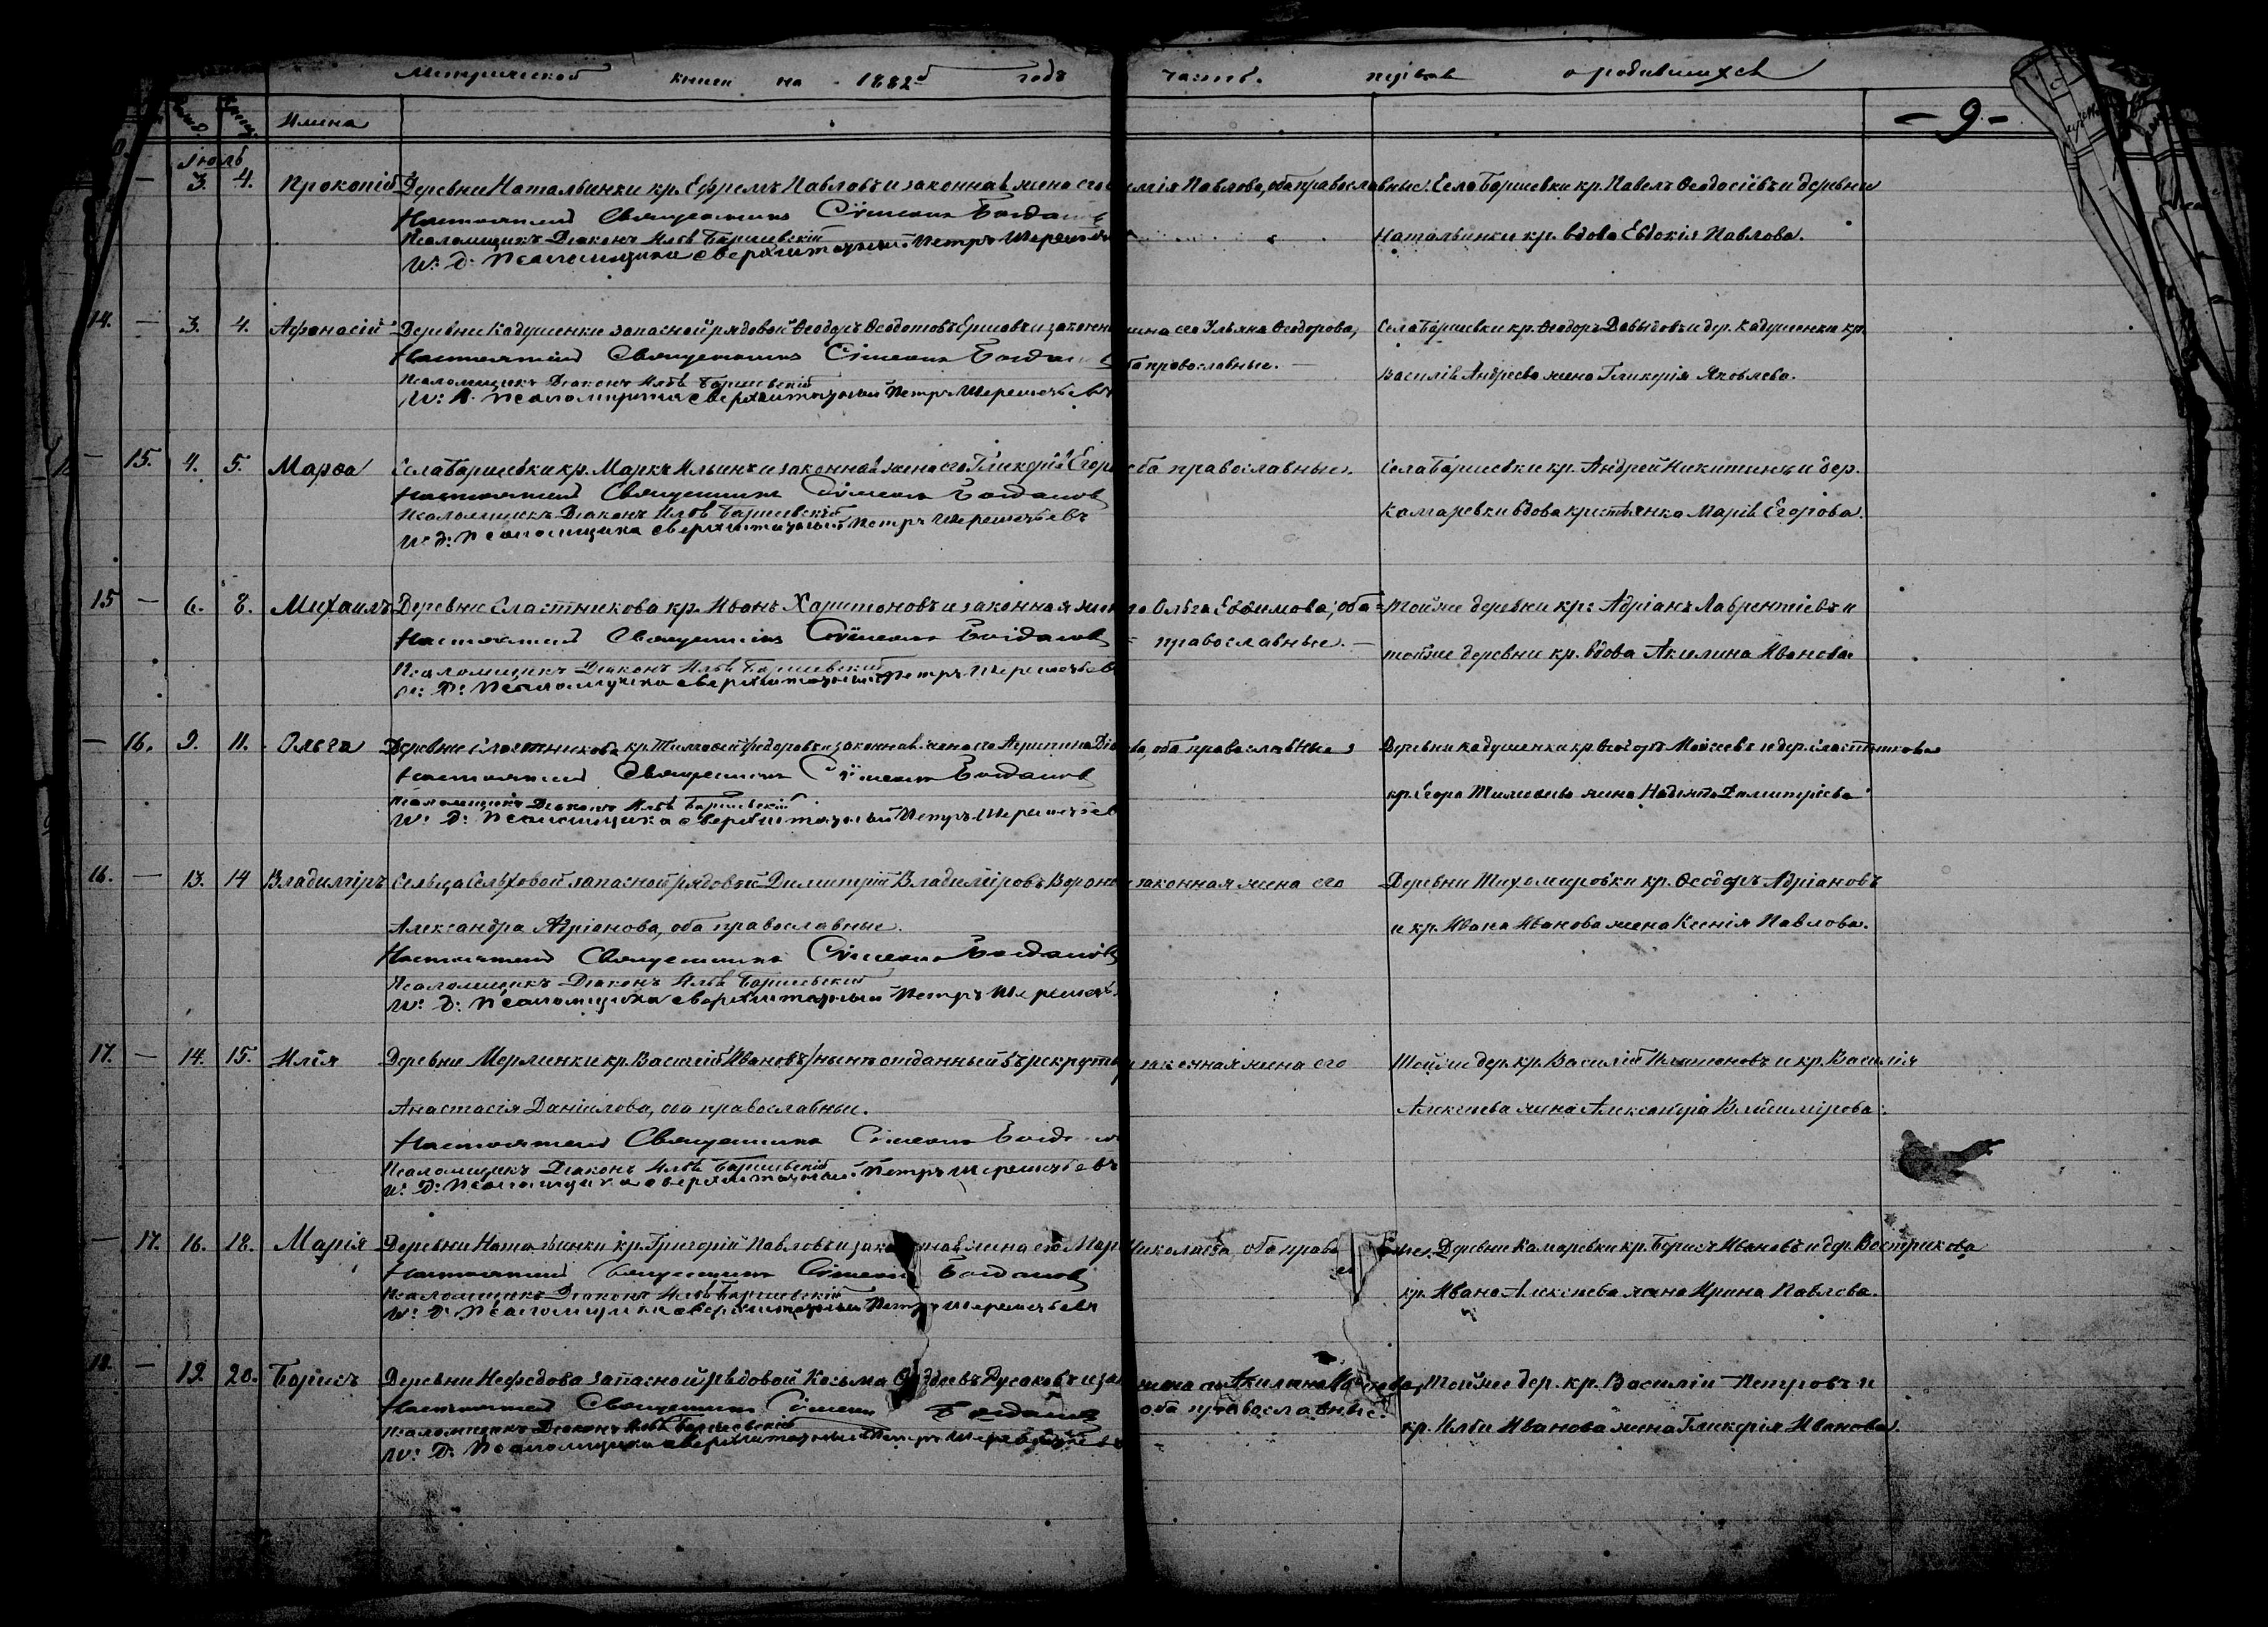 Метрической книги на 1882й годъ часть первая о родившихся
Имена
- 9 -
Июль
— 3. 4. Прокопій Деревни Натальинки кр. Ефремъ Павловъ и законная жена его Павлова, оба православные. Села Боршевки кр. Павелъ Ѳеодосіевъ и деревни
Настоятель Священникъ Сѵмеонъ Богдановъ
Псаломщикъ Діаконъ Илья Боршевскій Натальинки кр. вдова Евдокія Павлова.
И. д. Псаломщика сверхштатный Петръ
14. — 3. 4. Аѳанасій Деревни Кадушенки запасной рядовой Ѳеодоръ Ѳеодотовъ Ершовъ и законн жена его Ульяна Ѳеодорова, Села Боршевки кр. Ѳеодоръ Давыдовъ и дер. Кадушенки кр.
Настоятель Священникъ Сѵмеонъ Богдановъ оба православные. —
Псаломщикъ Діаконъ Илья Боршевскій Василія Андреева жена Гликерія Яковлева.
И. д. Псаломщика сверхштатный Петръ
— 15. 4. 5. Марѳа Села Боршевки кр. Маркъ Ильинъ и законная жена его Гликерія Егор оба православные. Села Боршевки кр. Андрей Никитинъ и дер.
Настоятель Священникъ Сѵмеонъ Богдановъ
Псаломщикъ Діаконъ Илья Боршевскій Комаревки вдова крестьянка Марія Егорова.
И. д. Псаломщика сверхштатный Петръ
15 — 6. 8. Михаилъ Деревни Сластникова кр. Иванъ Харитоновъ и законная жена его Ольга Евѳимова, оба = Той же деревни кр. Адріанъ Лаврентіевъ и
Настоятель Священникъ Сѵмеонъ Богдановъ = православные. —
Псаломщикъ Діаконъ Илья Боршевскій той же деревни кр. вдова Акилина Иванова.
И. д. Псаломщика сверхштатный Петръ
— 16. 9. 11. Ольга Деревни Сластникова кр. Тимоѳей Ѳедоровъ и законная жена его оба православные. Деревни Кадушенки кр. Ѳеодоръ Моисеевъ и дер. Сластникова
Настоятель Священникъ Сѵмеонъ Богдановъ
Псаломщикъ Діаконъ Илья Боршевскій кр. Егора Тимоѳеева жена Димитріева
И. д. Псаломщика сверхштатный Петръ
16. — 13. 14 Владиміръ Сельца запасной рядовой Димитрій Владиміровъ законная жена его Деревни Тихомировки кр. Ѳеодоръ Адріановъ
Александра Адріанова, оба православные. и кр. Ивана Иванова жена Ксенія Павлова.
Настоятель Священникъ Сѵмеонъ Богдановъ
Псаломщикъ Діаконъ Илья Боршевскій
И. д. Псаломщика сверхштатный Петръ
17. — 14. 15. Илія Деревни Мерлинки кр. Василій Ивановъ (нынѣ отданный въ рекруты) и законная жена его Той же дер. кр. Василій и кр. Василія
Анастасія Даніилова, оба православные. Алексѣева жена Александра Владимірова.
Настоятель Священникъ Сѵмеонъ Богдановъ
Псаломщикъ Діаконъ Илья Боршевскій
И. д. Псаломщика сверхштатный Петръ
— 17. 16. 18. Марія Деревни Натальинки кр. Григорій Павловъ и законная жена его Мар Николаева, оба православные. Деревни Комаревки кр. Борисъ Ивановъ и дер. Вострикова
Настоятель Священникъ Сѵмеонъ Богдановъ
Псаломщикъ Діаконъ Илья Боршевскій кр. Ивана Алексѣева жена Ирина Павлова.
И. д. Псаломщика сверхштатный Петръ
18. — 19 20. Борисъ Деревни Нефедова запасной рядовой Козьма Русаковъ и за жена его Акилина Той же дер. кр. Василій Петровъ и
Настоятель Священникъ Сѵмеонъ Богдановъ оба православные.
Псаломщикъ Діаконъ Илья Боршевскій кр. Ильи Иванова жена Гликерія Иванова.
И. д. Псаломщика сверхштатный Петръ